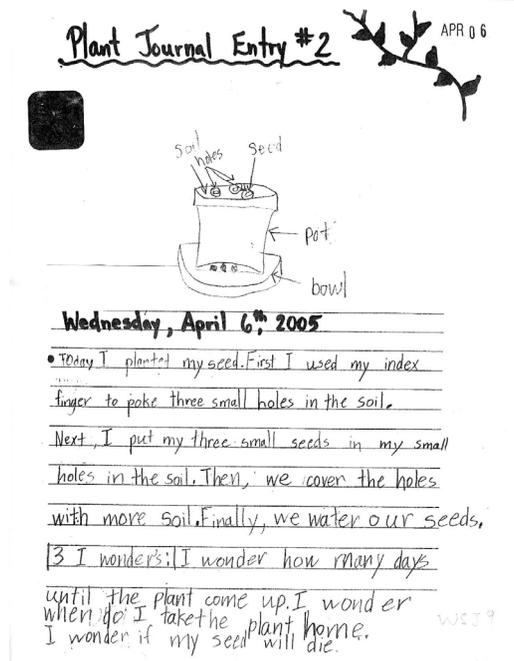 Plant Journal Entry #2
APR 06
soil
holes
seed
pot
bowl
Wednesday, April 6th, 2005
• Today I planted my seed. First I used my index
finger to poke three small holes in the soil.
Next, I put my three small seeds in my small
holes in the soil. Then, we cover the holes
with more soil. Finally, we water our seeds.
3 I wonders: I wonder how many days
until the plant come up. I wonder
when do I take the plant home.
I wonder if my seed will die.
WSJ9